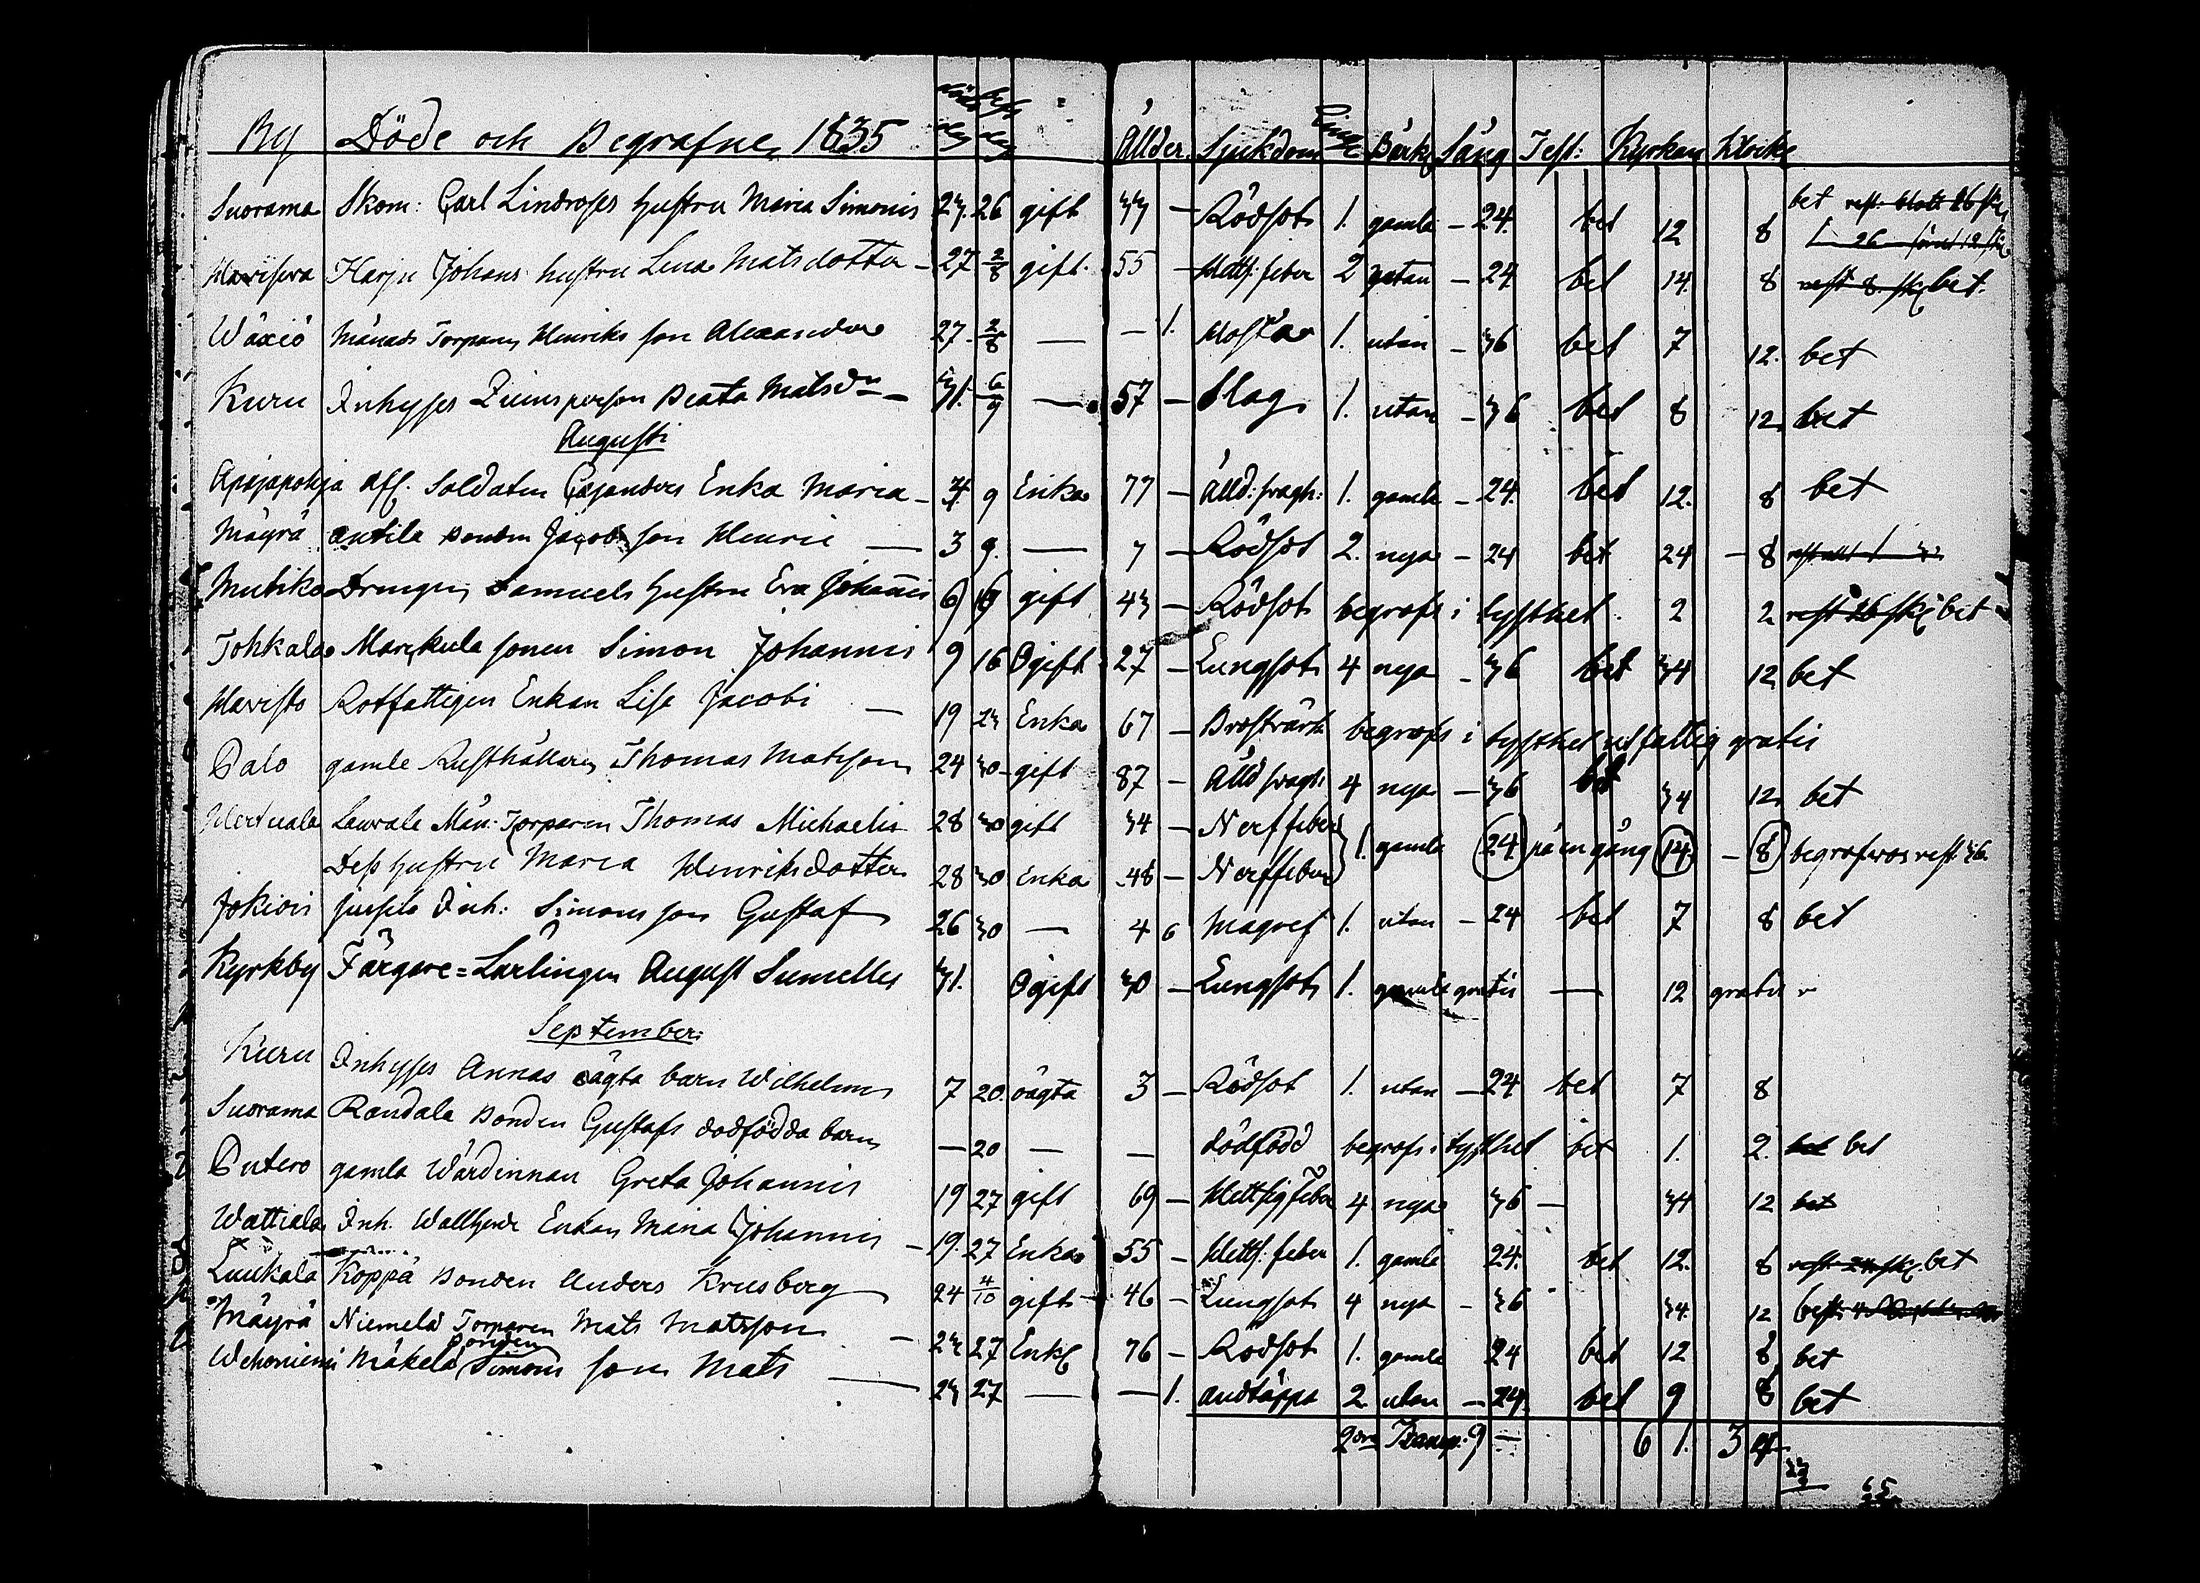 By Döde och Begrafne, 1835 död dag begr dag Ållder Sjukdom Ring: Bårkl Sång Test: Kyrkan Klocka
Suorama Skom: Carl Lindroses hustru Maria Simonis 23. 26 gift 33 — Rödsot 1. gamla — 24. bet 12 8 bet
Harju Johans hustru Lena Matsdotter — 27 2/8 gift. 55 — Hetts: feber 2 utan — 24 bet 14. 8 rest 8 sk bet.
Wäxiö Månads Torparen Henriks son Alexander 27. 2/8 — — 1. Hosta 1. utan — 36 bet 7 12. bet
Kuru Inhyses Qvinsperson Beata Matsdr — 31. 6/9 — 57 — Slag 1. utan — 36 bet 8 12 bet
Augusti
Apajapohja Aff. Soldaten Cajanders Enka Maria — 4 9 Enka 77 — Ålld: svagh: 1. gamla — 24. bet 12. 8 bet
Mäyrä Antila Bonden Jacobs son Henric — 3 9. — 7 — Rödsot 2. nya — 24 bet 24 — 8
Mutiko Drengen Samuels hustru Eva Johannis 6 16 gift 43 — Rödsot begrofs i tysthet. 2 2 rest 26 sk bet
Tohkala Markula sonen Simon Johannis 9 16 Ogift 27 — Lungsot 4 nya — 36 bet 34 12 bet
Havisto Rotfattigen Enkan Lisa Jacobi — 19 23 Enka 67 — Bröstvärk begrofs i tysthet utfattig gratis
Palo gamle Rusthållaren Thomas Matsson 24 30 gift 87 — Ålld svagh 4 nya — 36 bet 34 12. bet
Laurala Mån: Torparen Thomas Michaelis 28 30 gift 34 — Nerffeber 1. gamla 24 på en gång 14. — 8 begrofvos rest. 36.
Dess hustru Maria Henriksdotter 28 30 Enka 48 — Nerffeber
Jokiois Jussila Inh: Simons son Gustaf 26 30 — 4 6 Magref 1. utan — 24 bet 7 8 bet
Kyrkby Färgare=Lärlingen August Sumelles 31. Ogift 30 — Lungsot 1. gamla gratis — 12 gratis
September
Kuru Inhyses Annas oägta barn Wilhelm 7 20. oägta 3 — Rödsot 1. utan — 24 bet 7 8
Suorama Randala Bonden Gustafs dödfödda barn — 20 — — dödfödd begrofs i tysthet bet 1. 2. bet bet
Putero gamla Wärdinnan Greta Johannis 19 27 gift 69 — Hettsig feber 4 nya 36 — 34 12 bet
Wattiala Inh. Enkan Maria Johannis — 19. 27 Enka 55 — Hetts: feber 1. gamla 24. bet 12. 8 rest 24 sk bet
Luukala Koppå Bonden Anders Krusberg 24 4/10 gift 46 — Lungsot 4 nya — 36 34. 12
Mäyrä Niemelä Torparen Mats Matsson — 23 27 Enkl 76 — Rödsot 1. gamla 24 bet 12. 8 bet
Wehoniemi Mäkelä Bonden Simons son Mats — 23 27 — — 1. andtäppa 2 utan — 24. bet 9 8 bet
Transp: 9 — 6 1. 3